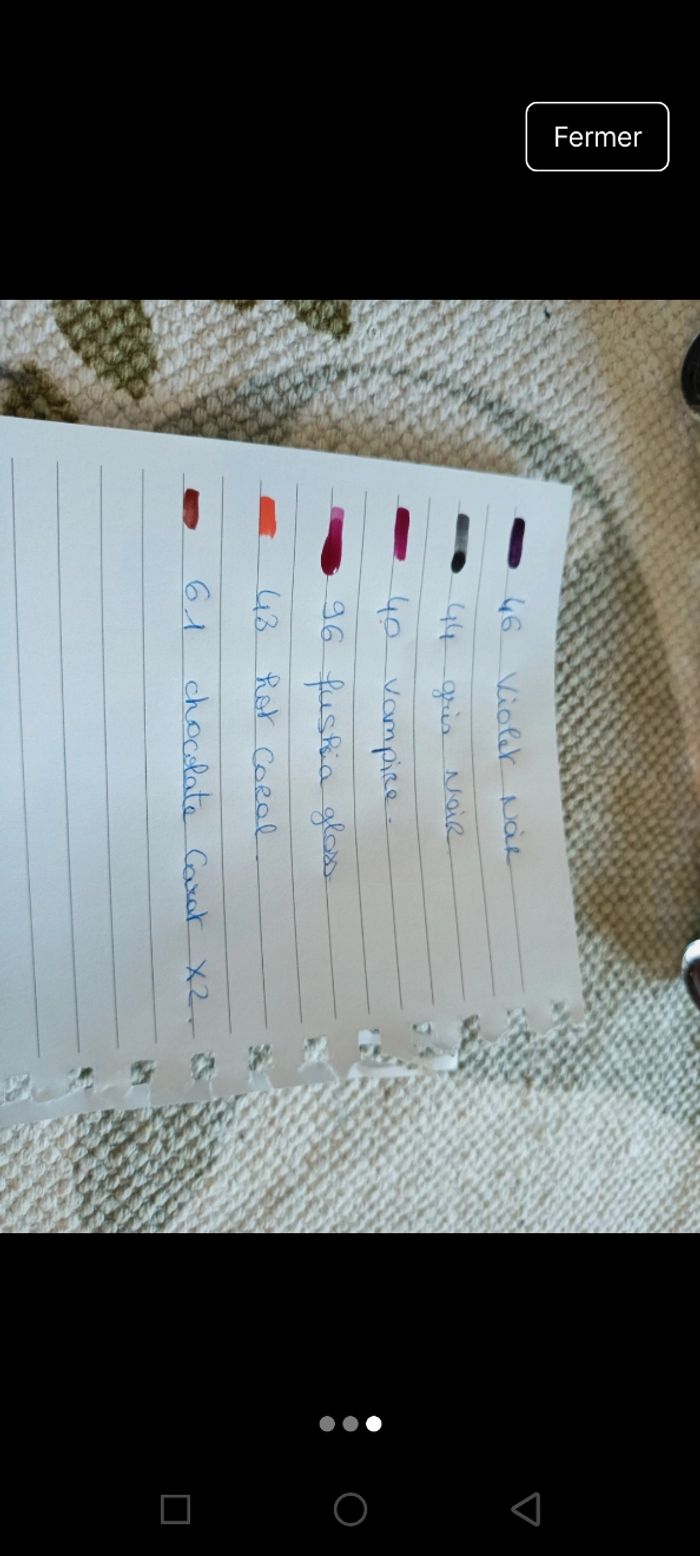 Fermer
46 Violet Noir
44 gris Noir
40 vampire.
96 fushia gloss
43 hot Coral.
61 chocolate Carat x2.